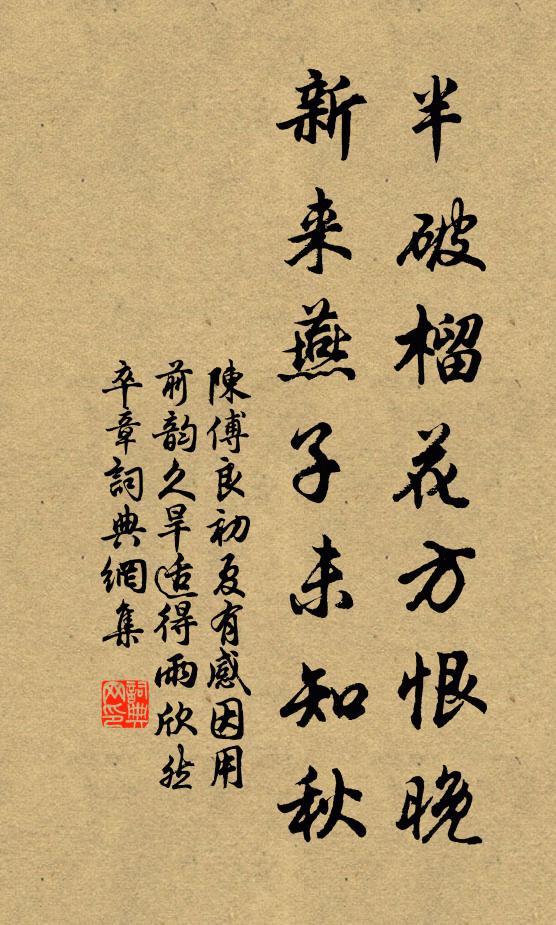 半破榴花方恨晚
新来燕子未知秋
陳傅良初夏有感因用
前韵久旱适得雨欣然
卒章詞典網集
詞典
网印